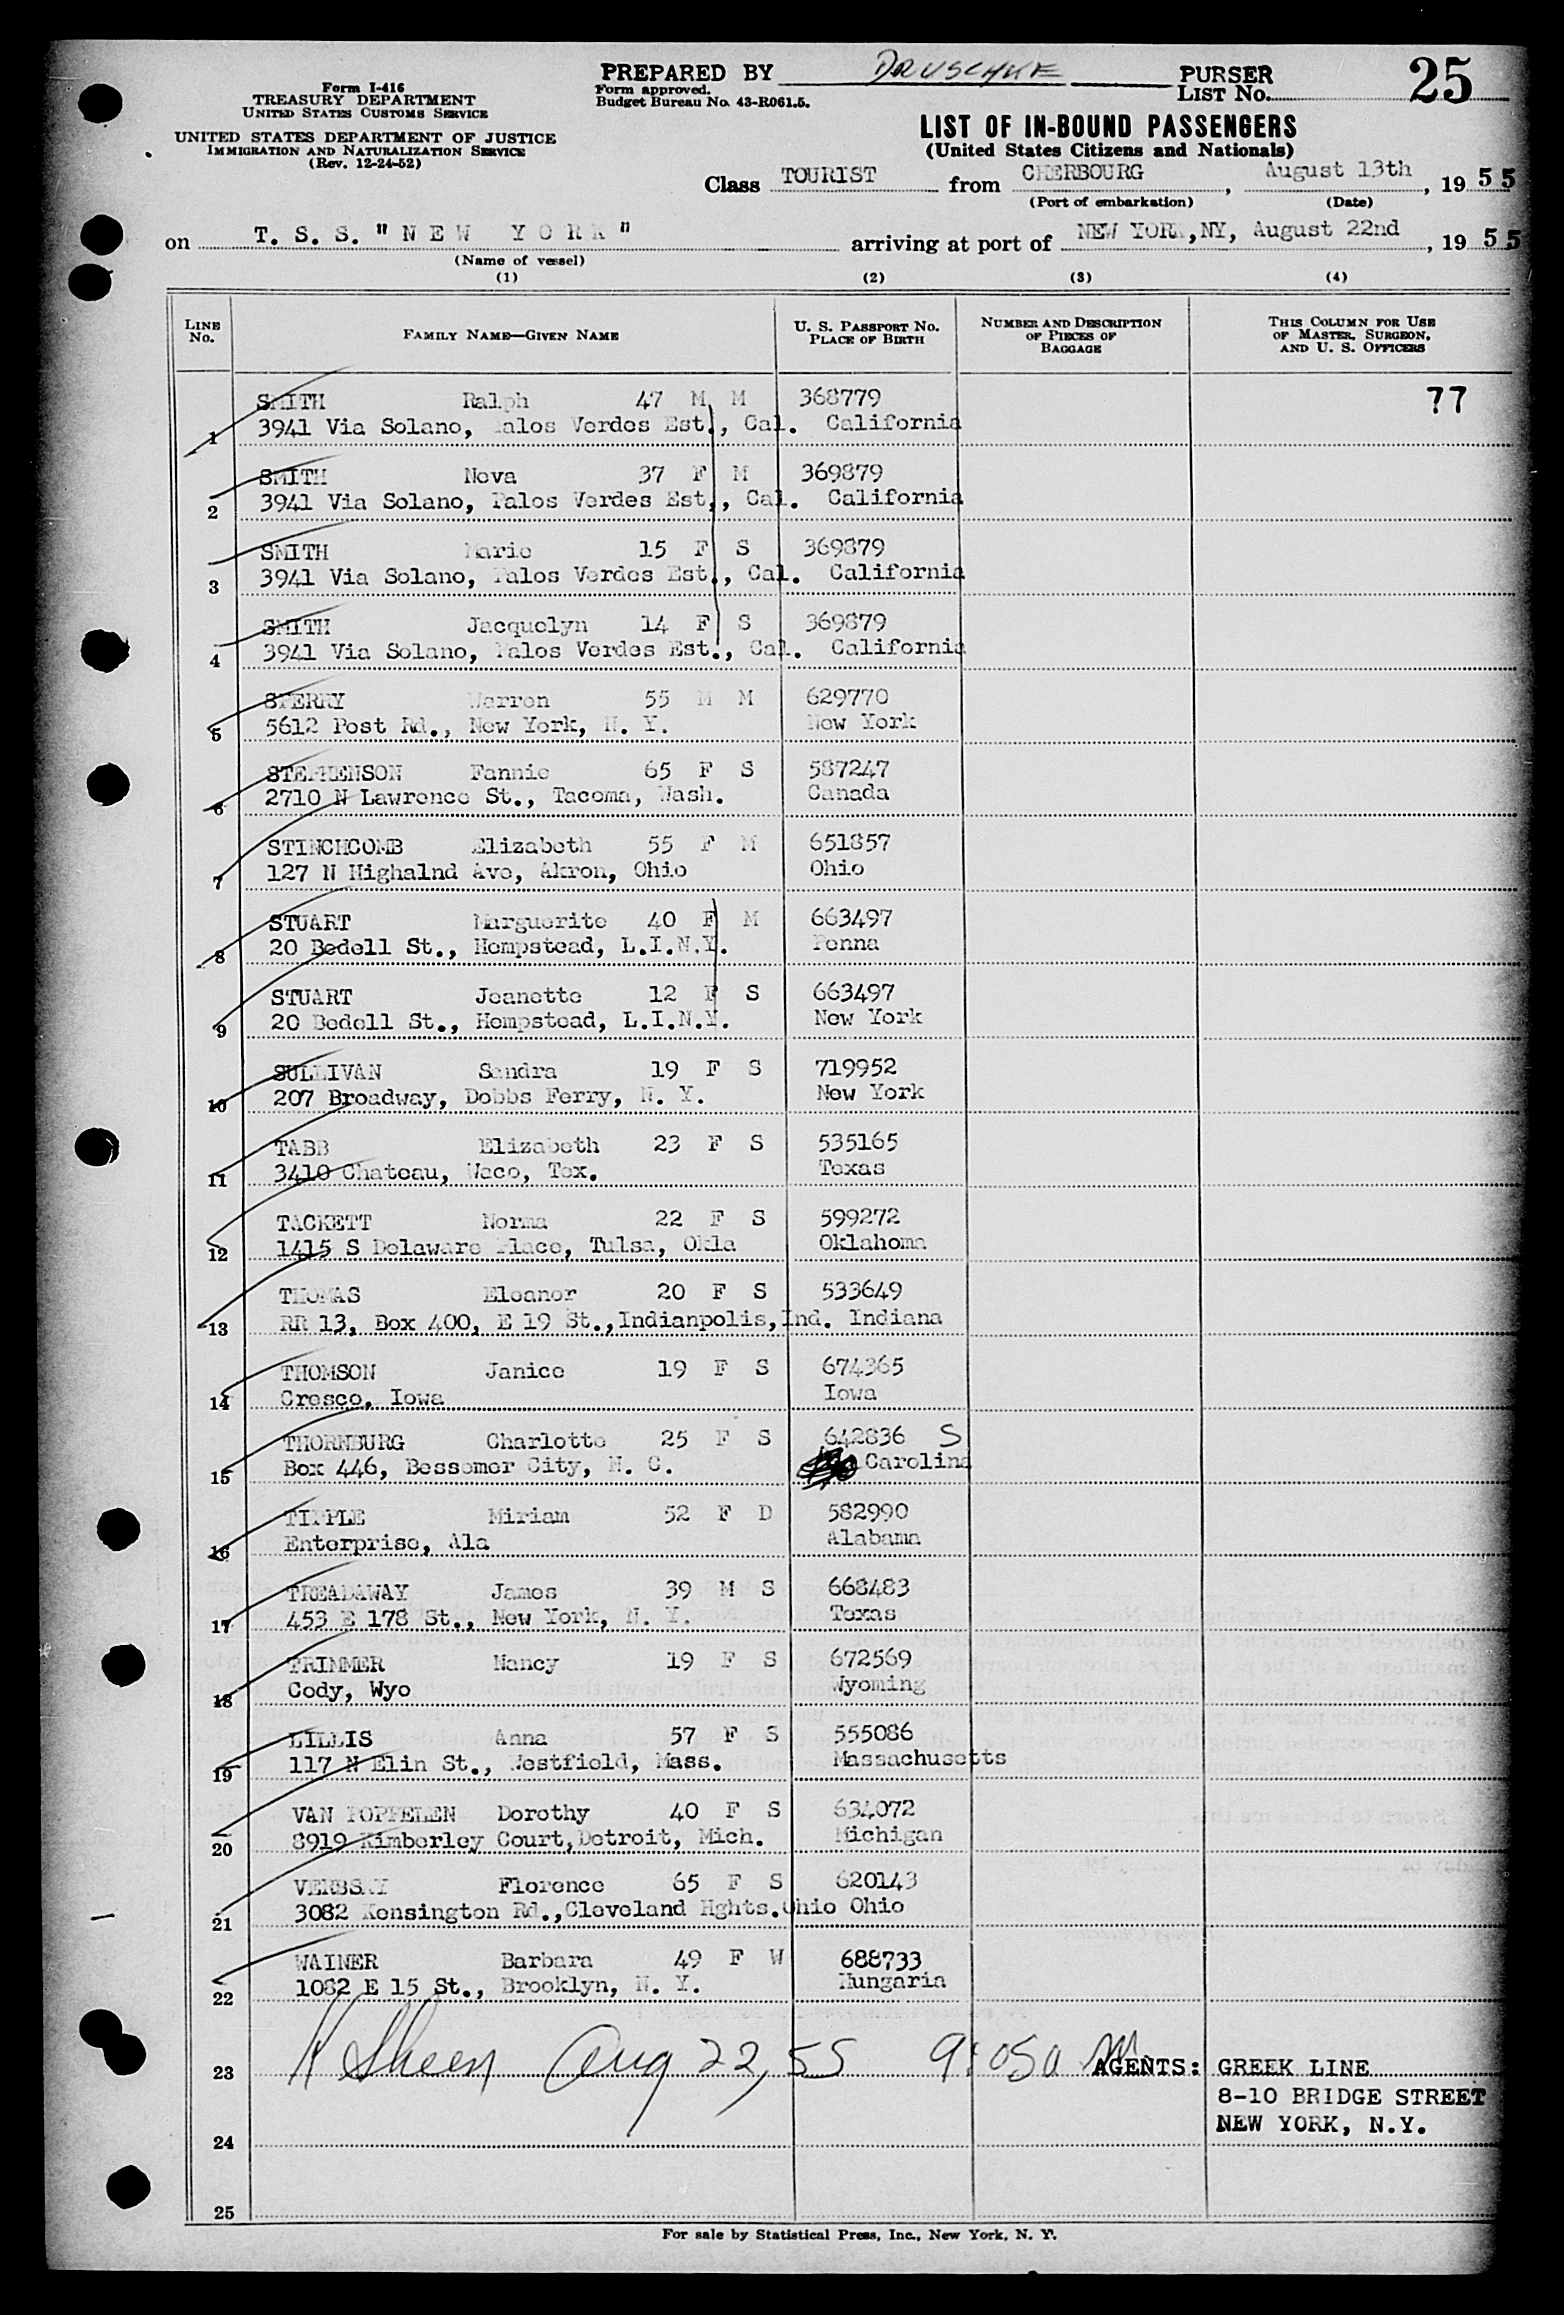 Form I-416
TREASURY DEPARTMENT
UNITED STATES CUSTOMS SERVICE
UNITED STATES DEPARTMENT OF JUSTICE
IMMIGRATION AND NATURALIZATION SERVICE
(Rev. 12-24-52)
PREPARED BY DRUSCHKE PURSER
Form approved.
Budget Bureau No. 43-R061.5.
LIST No. 25
LIST OF IN-BOUND PASSENGERS
(United States Citizens and Nationals)
Class TOURIST from CHERBOURG, August 13th, 1955
(Port of embarkation) (Date)
on T. S. S. "NEW YORK" arriving at port of NEW YORK,NY, August 22nd, 1955
(Name of vessel)
(1) (2) (3) (4)
LINE No. FAMILY NAME—GIVEN NAME U. S. PASSPORT No. PLACE OF BIRTH NUMBER AND DESCRIPTION OF PIECES OF BAGGAGE THIS COLUMN FOR USE OF MASTER, SURGEON, AND U. S. OFFICERS
SMITH Ralph 47 M M 368779 77
1 3941 Via Solano, Palos Verdes Est., Cal. California
SMITH Neva 37 F M 369879
2 3941 Via Solano, Palos Verdes Est., Cal. California
SMITH Marie 15 F S 369879
3 3941 Via Solano, Palos Verdes Est., Cal. California
SMITH Jacquelyn 14 F S 369879
4 3941 Via Solano, Palos Verdes Est., Cal. California
SPERRY Warren 55 M M 629770
5 5612 Post Rd., New York, N. Y. New York
STEPHENSON Fannie 65 F S 587247
6 2710 N Lawrence St., Tacoma, Wash. Canada
STINCHCOMB Elizabeth 55 F M 651857
7 127 N Highalnd Ave, Akron, Ohio Ohio
STUART Marguerite 40 F M 663497
8 20 Bedell St., Hempstead, L.I.N.Y. Penna
STUART Jeanette 12 F S 663497
9 20 Bedell St., Hempstead, L.I.N.Y. New York
SULLIVAN Sandra 19 F S 719952
10 207 Broadway, Dobbs Ferry, N. Y. New York
TABB Elizabeth 23 F S 535165
11 3410 Chateau, Waco, Tex. Texas
TACKETT Norma 22 F S 599272
12 1415 S Delaware Place, Tulsa, Okla Oklahoma
THOMAS Eleanor 20 F S 533649
13 RR 13, Box 400, E 19 St.,Indianpolis,Ind. Indiana
THOMSON Janice 19 F S 674365
14 Cresco, Iowa Iowa
THORNBURG Charlotte 25 F S 642836 S
15 Box 446, Bessemer City, N. C. Carolina
TIPPLE Miriam 52 F D 582990
16 Enterprise, Ala Alabama
TREADAWAY James 39 M S 668483
17 453 E 178 St., New York, N. Y. Texas
TRIMMER Nancy 19 F S 672569
18 Cody, Wyo Wyoming
LILLIS Anna 57 F S 555086
19 117 N Elin St., Westfield, Mass. Massachusetts
VAN POPPELEN Dorothy 40 F S 634072
20 8919 Kimberley Court,Detroit, Mich. Michigan
VERBSKY Florence 65 F S 620143
21 3082 Kensington Rd.,Cleveland Hghts.Ohio Ohio
WAINER Barbara 49 F W 688733
22 1082 E 15 St., Brooklyn, N. Y. Hungaria
23 Sheen Aug 22, 55 9:05a m AGENTS: GREEK LINE
8-10 BRIDGE STREET
24 NEW YORK, N.Y.
25
For sale by Statistical Press, Inc., New York, N. Y.